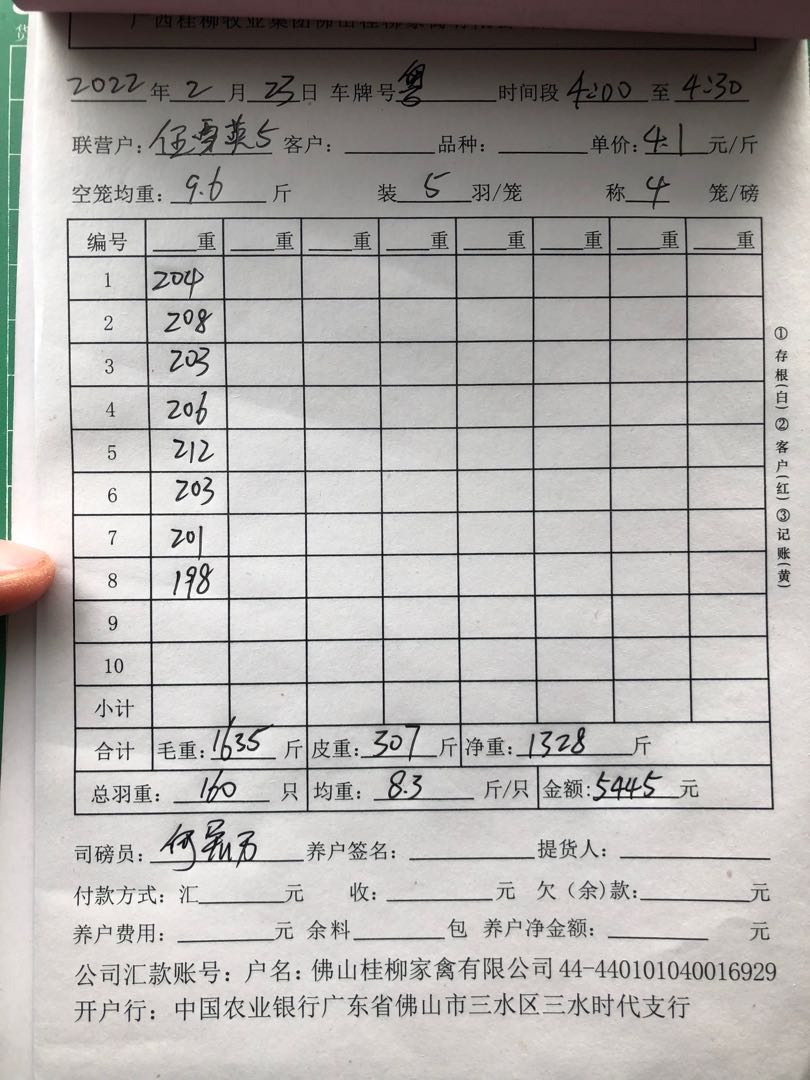 2022年2月23日 车牌号粤 时间段4:00至4:30
联营户:伍雪英5 客户: 品种: 单价:4.1元/斤
空笼均重:9.6斤 装5羽/笼 称4笼/磅
编号 重 重 重 重 重 重 重 重
1 204
2 208
3 203
4 206
5 212
6 203
7 201
8 198
9
10
小计
合计 毛重:1635斤 皮重:307斤 净重:1328斤
总羽重:160只 均重:8.3斤/只 金额:5445元
司磅员: 养户签名: 提货人:
付款方式:汇 元 收: 元 欠(余)款: 元
养户费用: 元 余料 包 养户净金额: 元
公司汇款账号:户名:佛山桂柳家禽有限公司44-440101040016929
开户行:中国农业银行广东省佛山市三水区三水时代支行
①存根(白)②客户(红)③记账(黄)